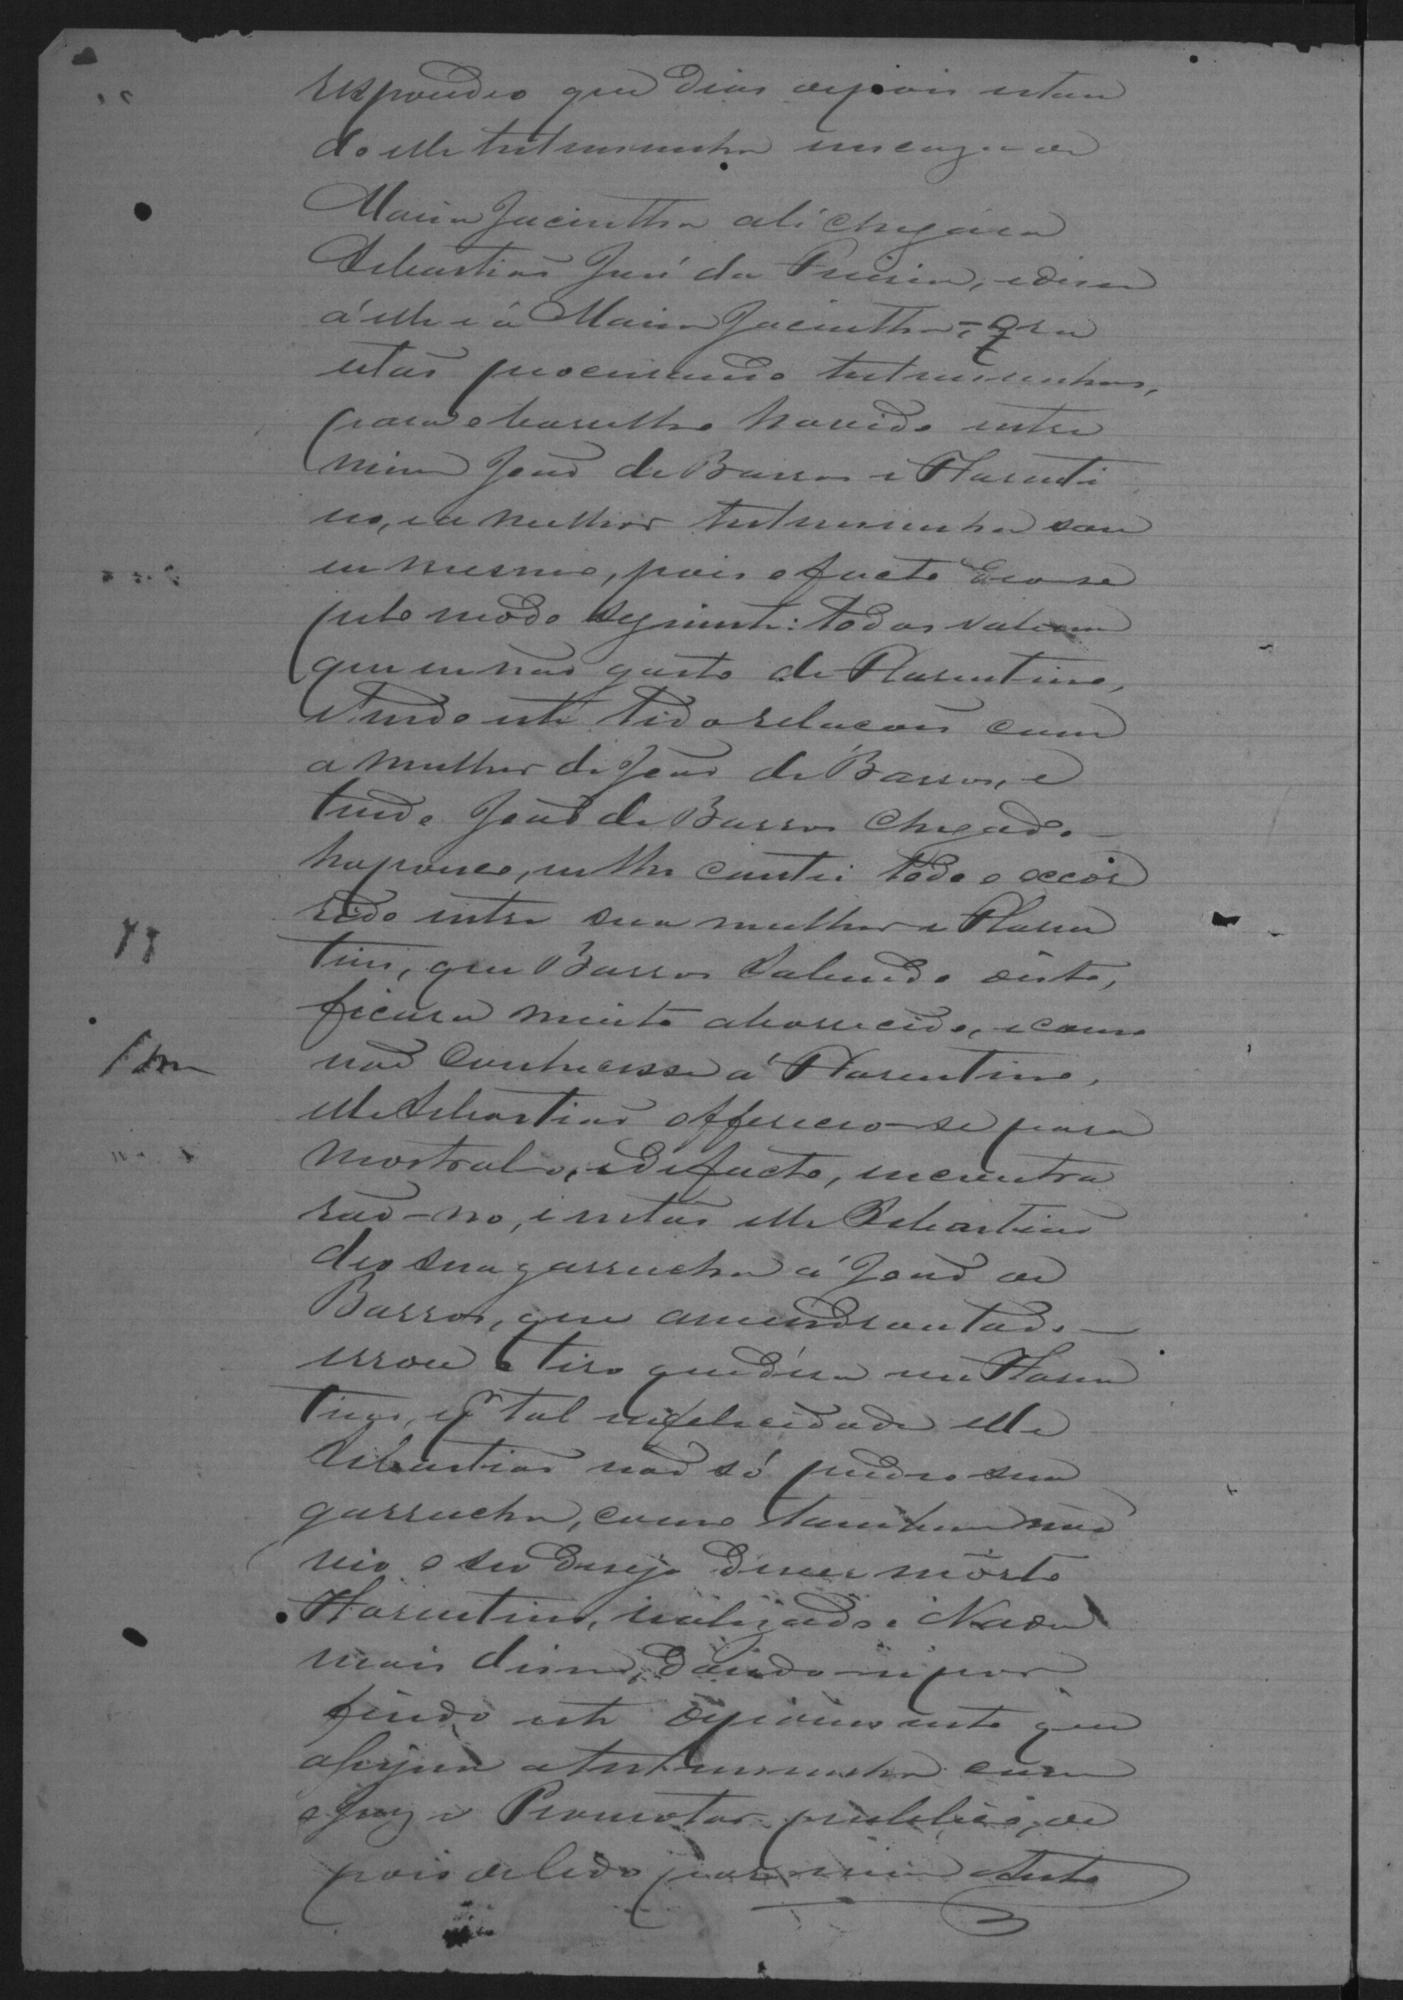 respondeo que dias depois estan
do elle testemunha em caza de
Maria Jacintha ali chegára
Sebastião José da Pereira, e disse
á elle e á Maria Jacintha, = que
estão procurando testemunhas,
para o barulho havido entre
mim João de Barros e Florenti
no, e a melhor testemunha sou
eu mesmo, pois o facto deo-se
pelo modo seguinte: todos sabem
que eu não gosto de Florentino,
e tendo este tido relacões com
a mulher de João de Barros, e
tendo João de Barros chegado
ha pouco, eu lhe contei todo o occor
rido entre sua mulher e Floren
tino, que Barros sabendo disto,
ficára muito aborrecido, e como
não conhecesse á Florentino,
elle Sebastião offereceo-se para
mostral-o, e de facto, encontra
rão-no, e então elle Sebastião
deo sua garrucha á João de
Barros, que amedrontado
errou o tiro que déra em Floren
tino, e pr tal infelicidade elle
Sebastião não só perdeo sua
garrucha, como tambem não
vio o seo desejo de ver morto
Florentino, realizado. Nada
mais disse, dando-se por
findo este depoimento que
assigna a testemunha com
o Juiz e Promotor publico, de
pois de lido por mim